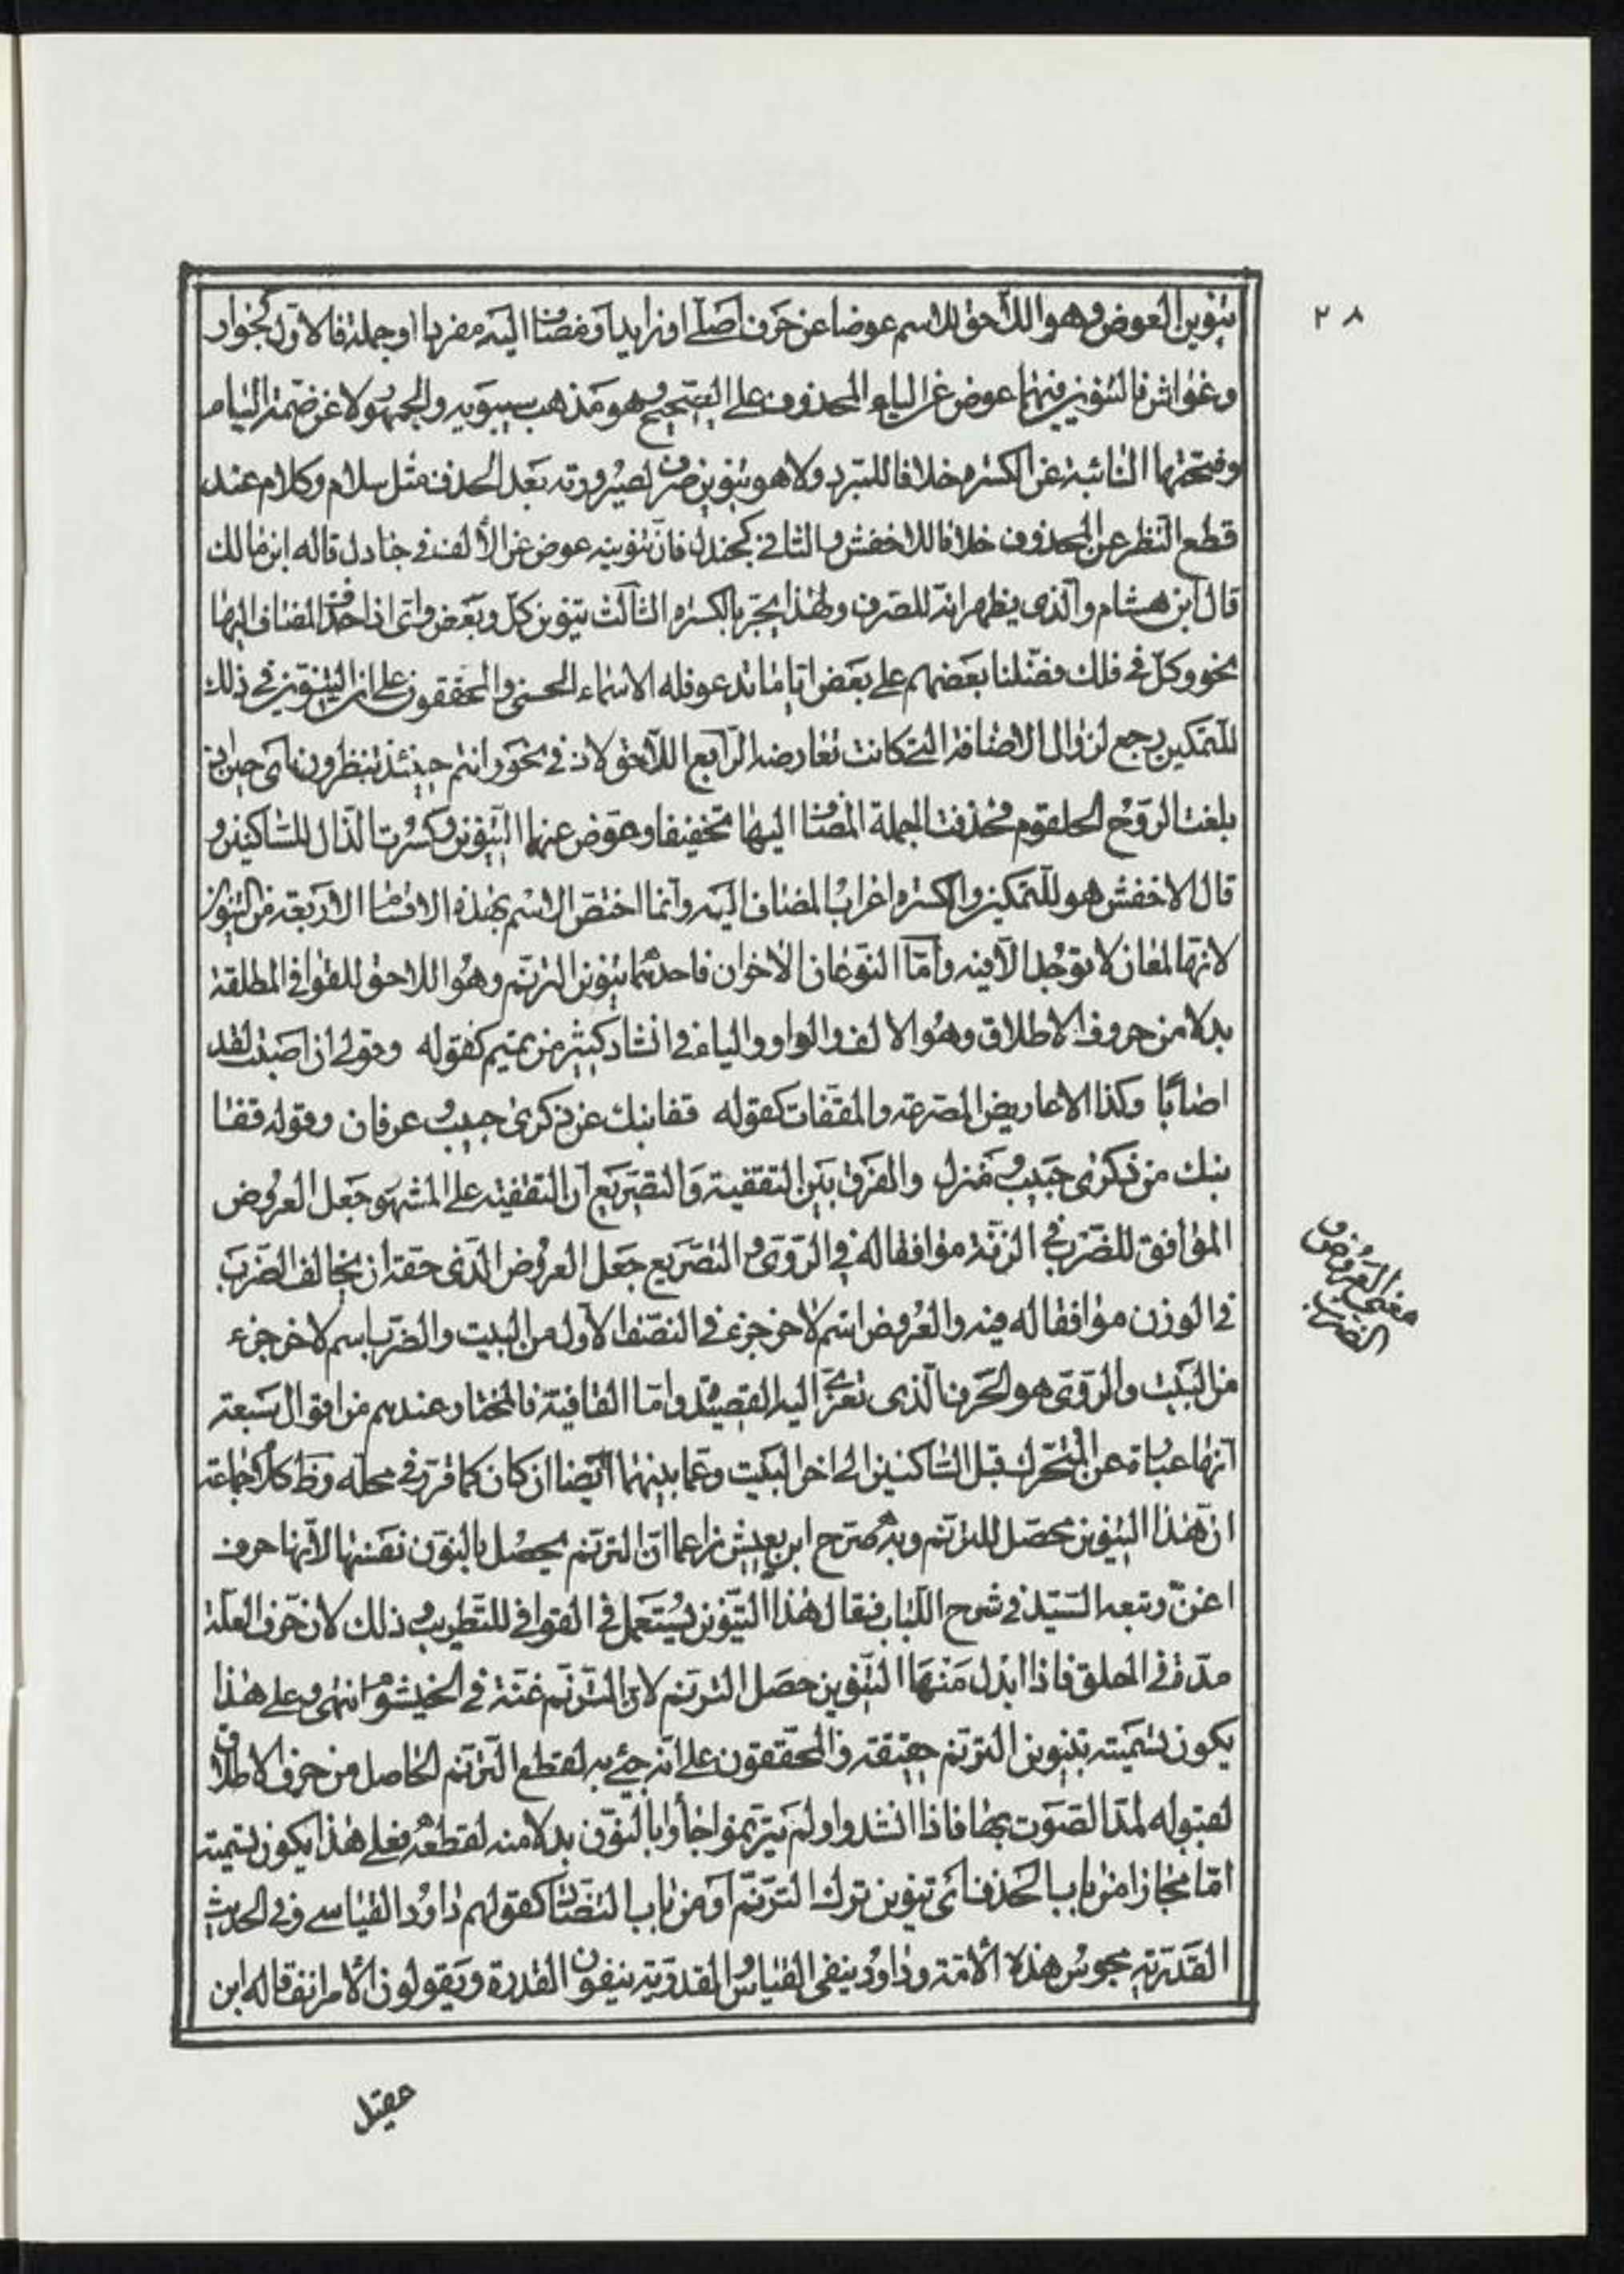 ٢٨
تنوين العوض وهو اللاحق للاسم عوضا عن حرف اصلي او زايد او مضاف اليه مفردا او جملة فالاول كجوار
وغواش فالتنوين فيهما عوض عن الياء المحذوف على الصحيح وهو مذهب سيبويه والجمهور لا عن ضمة الياء
وفتحتها النائبة عن الكسره خلافا للمبرد ولا هو تنوين صرف لصيرورته بعد الحذف مثل سلام وكلام عند
قطع النظر عن المحذوف خلافا للاخفش والثاني كجندل فان تنوينه عوض عن الألف في جنادل قاله ابن مالك
قال ابن هشام والذي يظهر انه للصرف ولهذا يجر بالكسره الثالث تنوين كل وبعض واي اذا حذف المضاف اليها
نحو وكل في فلك فضلنا بعضهم على بعض اياما تدعو فله الاسماء الحسنى والمحققون على ان التنوين في ذلك
للتمكين رجع لزوال الاضافة التي كانت تعارضه الرابع اللاحق لاذ في نحو وانتم حينئذ تنظرون اي حين اذ
بلغت الروح الحلقوم فحذفت الجملة المضاف اليها تخفيفا وعوض عنها التنوين وكسرت الذال للساكنين و
قال الاخفش هو للتمكين والكسره اعراب المضاف اليه وانما اختص الاسم بهذه الاقسام الاربعة من التنوين
لانها لمعان لا توجد الا فيه واما النوعان الاخوان فاحدهما تنوين الترنم وهو اللاحق للقوافي المطلقة
بدلا من حروف الاطلاق وهو الالف والواو والياء في انشاد كثير من تميم كقوله وقولي ان اصبت لقد
اصابا وكذا الاعاريض المصرعة والمقفات كقوله قفا نبك عن ذكرى حبيب وعرفان وقوله قفا
نبك من ذكرى حبيب ومنزل والفرق بين التقفية والتصريع ان التقفية على المشهو جعل العروض
الموافق للضرب في الزنة موافقا له في الروي والتصريع جعل العروض الذي حقه ان يخالف الضرب
في الوزن موافقا له فيه والعروض اسم لاخر جزء في النصف الاول من البيت والضرب اسم لاخر جزء
من البيت والروي هو الحرف الذي تعزى اليه القصيدة واما القافية فالمختار عندهم من اقوال سبعة
انها عبارة عن المتحرك قبل الساكنين الى اخر البيت وعما بينهما ايضا ان كان كما قرر في محله وظ كلام جماعة
ان هذا التنوين محصل للترنم وبه صرح ابن يعيش زاعما ان الترنم يحصل بالنون نفسها لانها حرف
اغن وتبعه السيد في شرح اللباب فقال هذا التنوين يستعمل في القوافي للتطريب وذلك لان حرف العلة
مدة في الحلق فاذا ابدل منها التنوين حصل الترنم لان الترنم غنة في الخيشوم انتهى وعلى هذا
يكون تسميته بتنوين الترنم حقيقة والمحققون على انه جيء به لقطع الترنم الحاصل من حرف الاطلاق
لقبوله لمد الصوت بها فاذا انشدوا ولم يترنموا جاؤا بالنون بدلا منه لقطعه فعلى هذا يكون تسميته
اما مجازا من باب الحذف اي تنوين ترك الترنم او من باب التضاد كقولهم داود القياسي وفي الحديث
القدرية مجوس هذه الأمة وداود ينفي القياس والقدرية ينفون القدرة ويقولون الأمر انف قاله ابن
معنى العروض
والضرب
عقيل